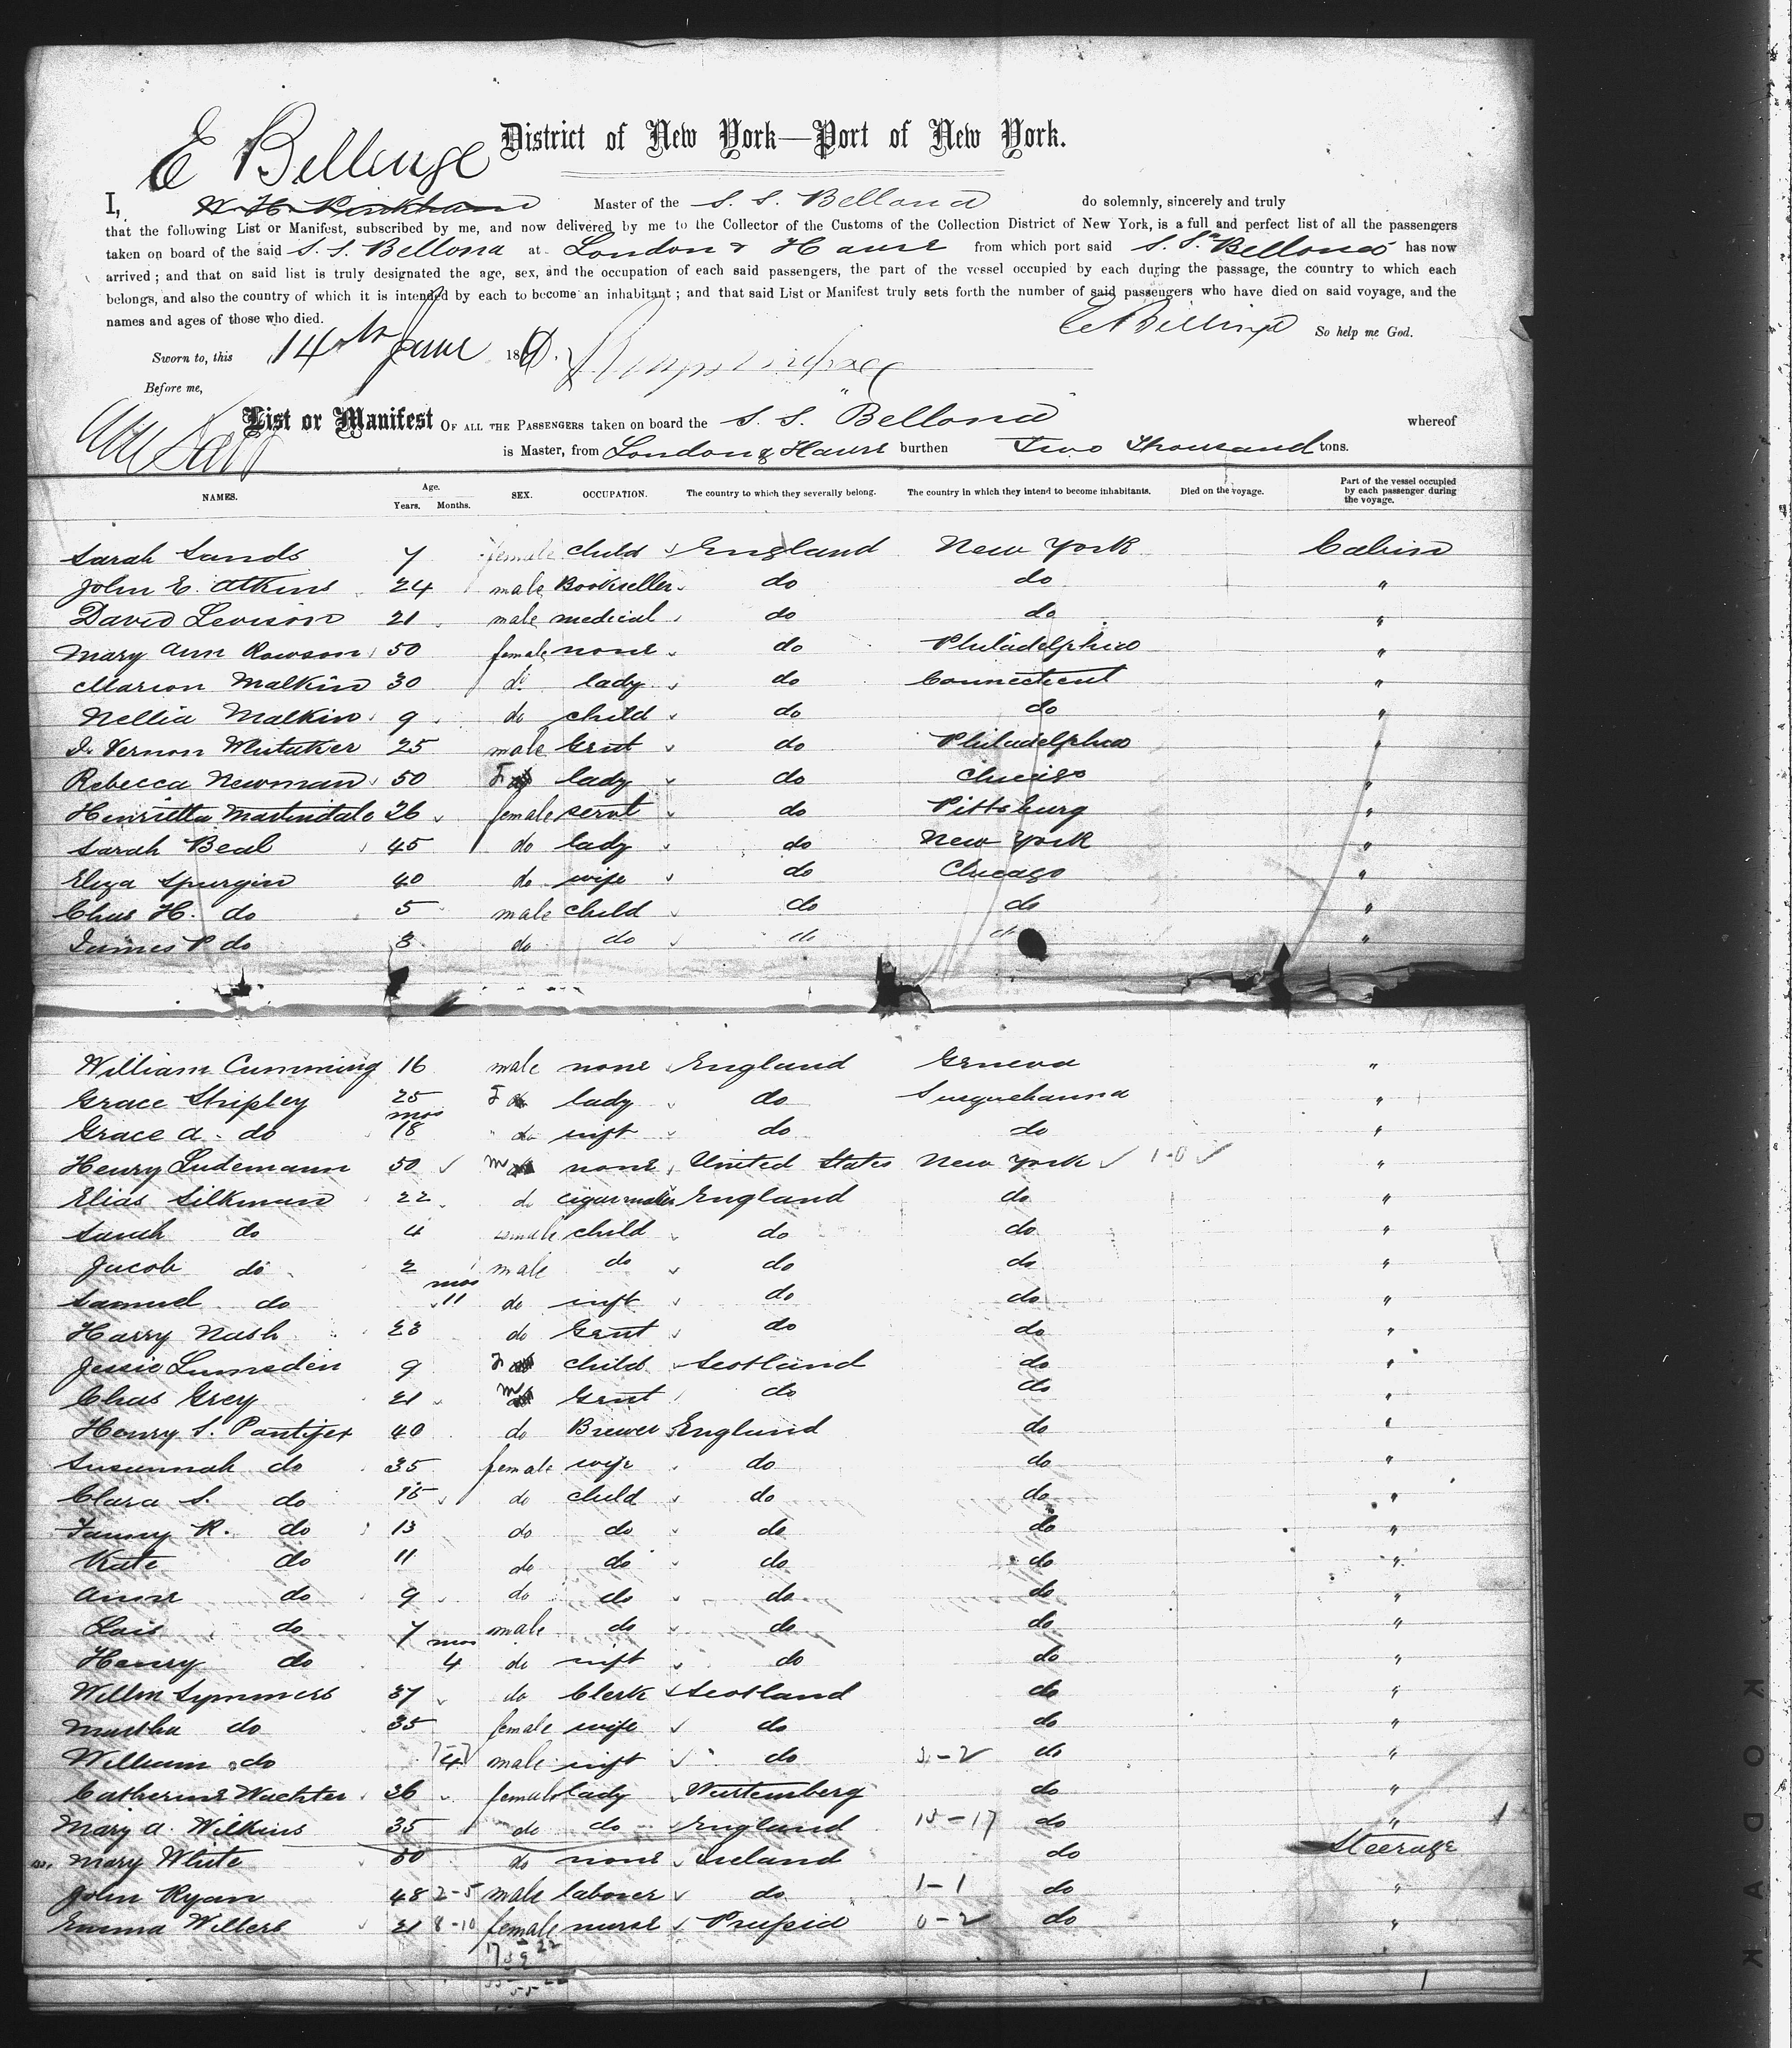 E Billinge
District of New York—Port of New York.
I, W. H. Pinkham Master of the S. S. Bellona do solemnly, sincerely and truly
that the following List or Manifest, subscribed by me, and now delivered by me to the Collector of the Customs of the Collection District of New York, is a full and perfect list of all the passengers
taken on board of the said S. S. Bellona at London & Havre from which port said S. S. "Bellona" has now
arrived ; and that on said list is truly designated the age, sex, and the occupation of each said passengers, the part of the vessel occupied by each during the passage, the country to which each
belongs, and also the country of which it is intended by each to become an inhabitant ; and that said List or Manifest truly sets forth the number of said passengers who have died on said voyage, and the
names and ages of those who died.
E Billinge So help me God.
Sworn to, this 14th June 18
Before me,
List or Manifest OF ALL THE PASSENGERS taken on board the S. S. "Bellona" whereof
is Master, from London & Havre burthen Two Thousand tons.
NAMES. Age. Years. Months. SEX. OCCUPATION. The country to which they severally belong. The country in which they intend to become inhabitants. Died on the voyage. Part of the vessel occupied by each passenger during the voyage.
Sarah Sands 7 female child England New York Cabin
John E. Atkins 24 male Bookseller do do "
David Levison 21 male medical do do "
Mary Ann Rowson 50 female none do Philadelphia "
Marion Malkin 30 do lady do Connecticut "
Nellia Malkin 9 do child do do "
D. Vernon Whitaker 25 male Gent do Philadelphia "
Rebecca Newman 50 F lady do Chicago "
Henrietta Martindale 26 female servt do Pittsburg "
Sarah Beal 45 do lady do New York "
Eliza Spurgin 40 do wife do Chicago "
Chas H. do 5 male child do do "
James P do 3 do do do do "
William Cumming 16 male none England Geneva "
Grace Shipley 25 F lady do Susquehanna "
Grace A. do mos 18 do inft do do "
Henry Ludemann 50 m none United States New York 1-0 "
Elias Silkman 22 do cigar maker England do "
Sarah do 4 female child do do "
Jacob do 2 male do do do "
Samuel do mos 11 do inft do do "
Harry Nash 23 do Gent do do "
Jessie Lumsden 9 F child Scotland do "
Chas Grey 21 m Gent do do "
Henry S. Pontifex 40 do Brewer England do "
Susannah do 35 female wife do do "
Clara S. do 15 do child do do "
Fanny R. do 13 do do do do "
Kate do 11 do do do do "
Anne do 9 do do do do "
Lais do 7 male do do do "
Henry do mos 4 do inft do do "
Willm Symmers 37 do Clerk Scotland do "
Martha do 35 female wife do do "
William do 4 male inft do 3-2 do "
Catherine Wachter 26 female lady Wurtemberg do "
Mary A. Wilkins 35 do do England 15-17 do "
Mary White 60 do none Ireland do Steerage
John Ryan 48 2-5 male laborer do 1-1 do "
Emma Willers 21 8-10 female nurse Prussia 0-2 do "
KODAK